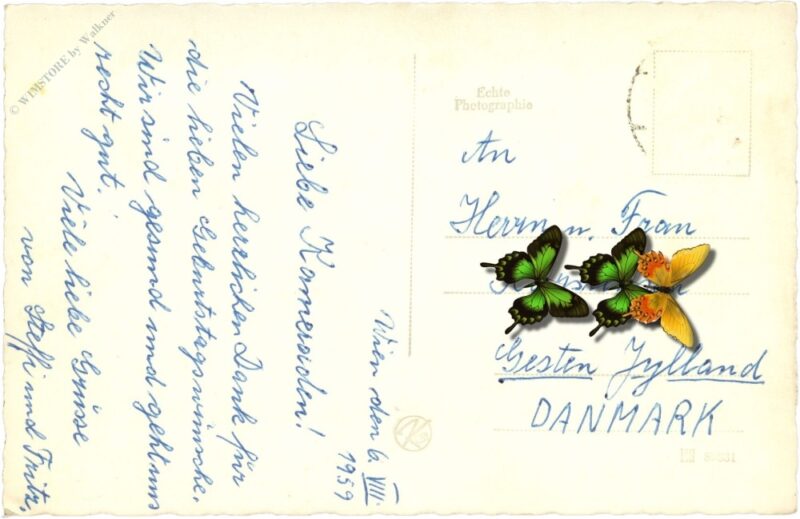 © WIMSTORE by Walkner
Wien den 6. VIII.
1959
Liebe Kameraden!
Vielen herzlichen Dank für
die lieben Geburtstagswünsche.
Wir sind gesund und geht uns
recht gut.
Viele liebe Grüsse
von Steffi und Fritz.
Echte
Photographie
An
Herrn u. Frau
Gesten Jylland
DANMARK